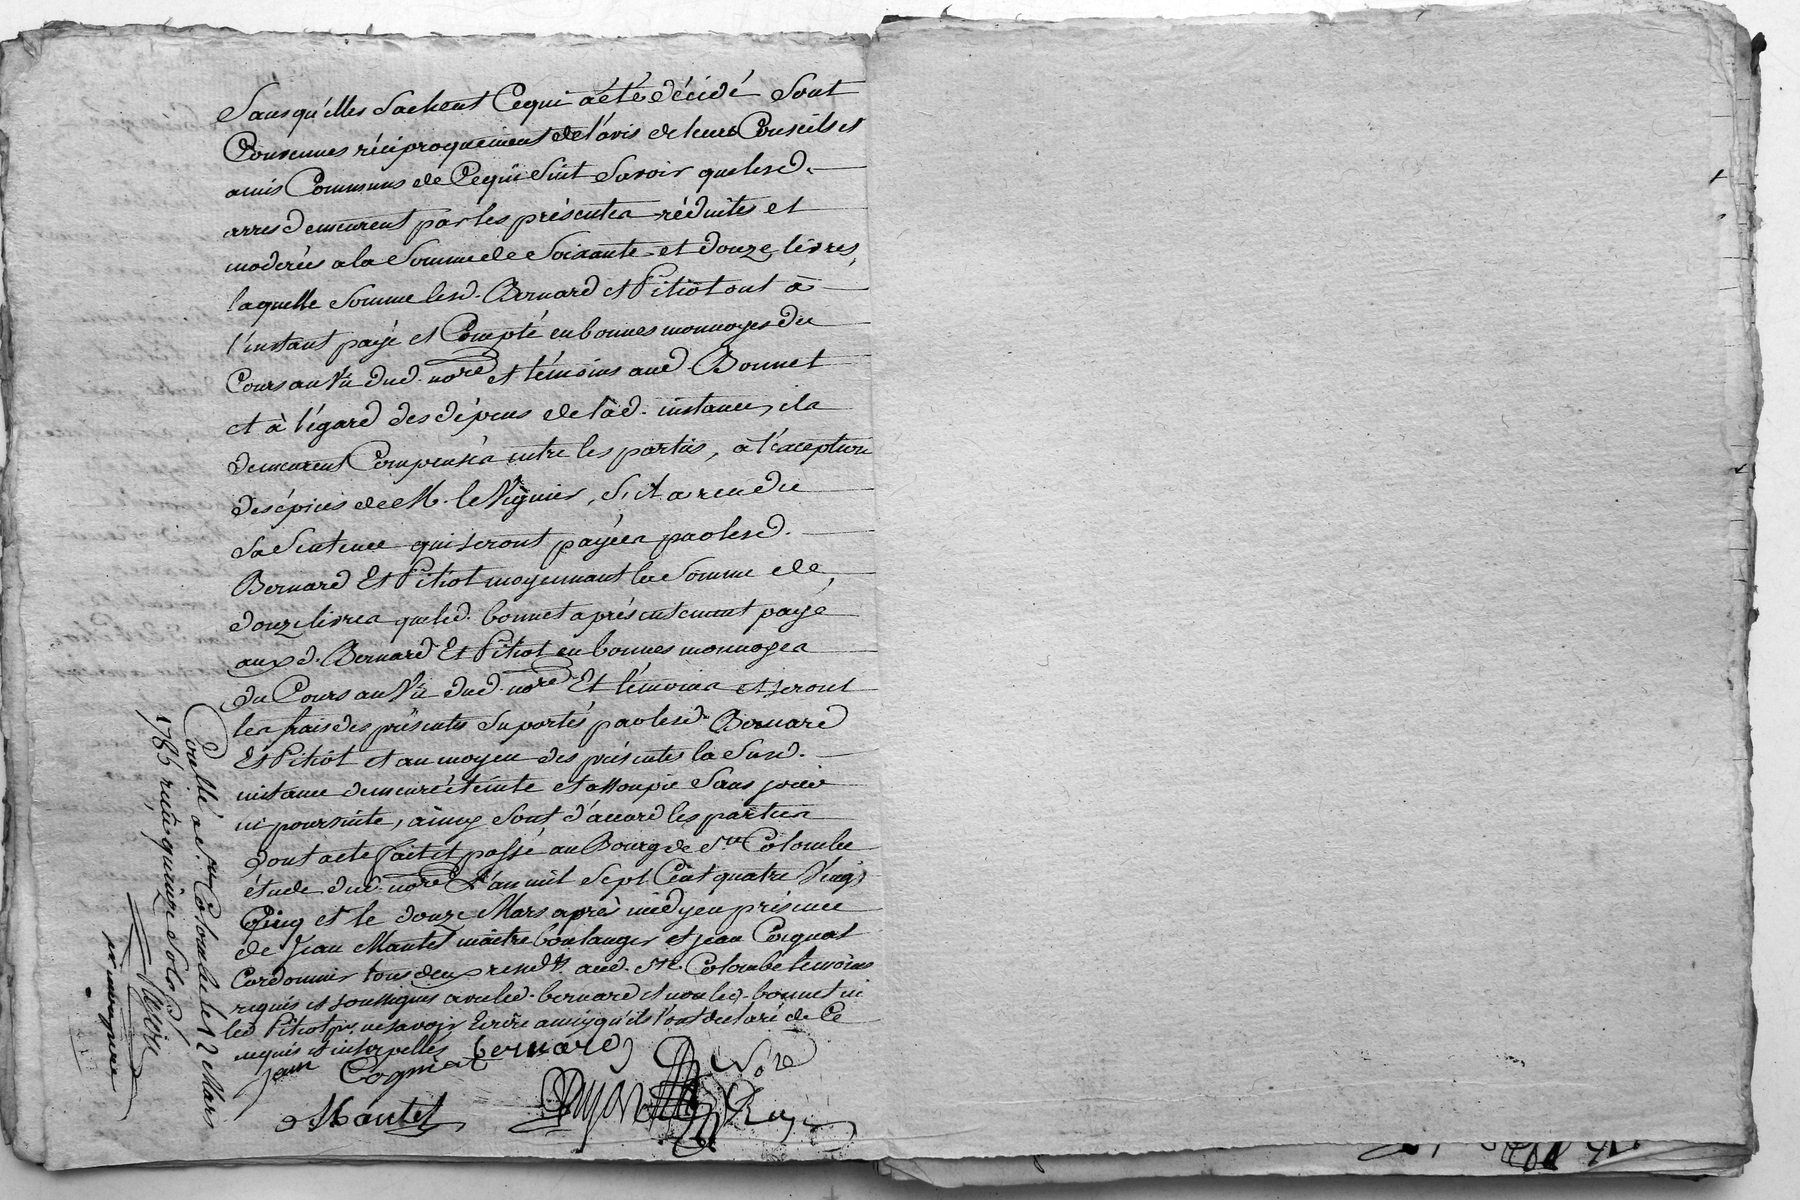 Sans qu'elles Sachent Cequi aété décidé Sont
Convenues réciproquement de l'avis de leurs Conseils et
amis Communs de Cequi Suit Savoir que lesd.
arres demeurent par les présentes réduites et
moderées a la Somme de Soixante et douze livres,
laquelle Somme lesd. Bernard et Pitiot ont à
l'instant payé et Compté en bonnes monnoyes du
Cours au Vû dud. nore et témoins aud. Bonnet
et à l'égard des dépens de lad. instance, ils
demeurent Compensés entre les parties, à l'exception
des épices de M. le Viguier, S'il a rendu
Sa Sentence qui seront payées par lesd.
Bernard Et Pitiot moyennant la Somme de
douze livres que led. bonnet a présentement payé
auxd. Bernard Et Pitiot en bonnes monnoyes
du Cours au Vû dud. nore Et témoins et seront
les frais des présentes Suportés par lesd. Bernard
Et Pitiot et au moyen des présentes la Susd.
instance demeure éteinte et assoupie Sans
ni poursuite, ainsy Sont d'accord les parties
Dont acte fait et passé au Bourg de Ste Colombe
étude dud. nore L'an mil Sept Cent quatre Vingt
Cinq et le douze Mars après midy en présence
de Jean Mantel maître boulanger et jean Coignat
Cordonnier tous deux residts aud. Ste Colombe témoins
requis et soussignés avec led. bernard et non led. bonnet ni
led Pitiot pr. ne Savoir Ecrire ainsy qu'ils l'ont déclaré de Ce
requis et interpellés bernard
jean Cogniat
Mantel
Nore
Ry
Conllé a Ste Colombe le 12 Mars
1785 reçu quinze Sols